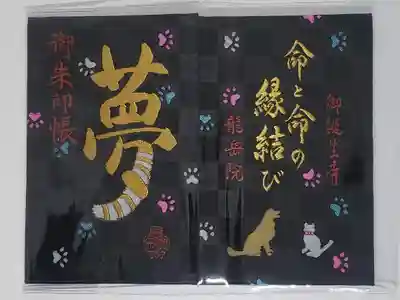 御朱印帳
夢
命と命の
縁結び
御誕生寺
龍岳院